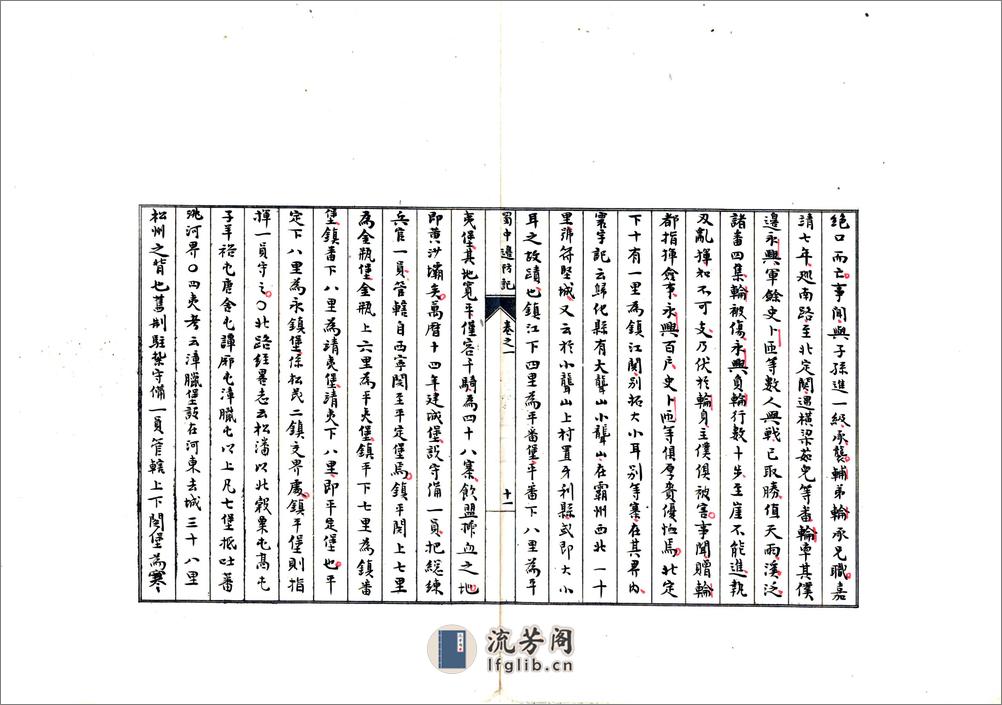 絕口而亡事聞與子孫進一級承襲輔弟輪承兄職嘉
靖七年廵南路至北定関遇橫梁茹兒等番輪率其僕
邊永興軍餘史卜匝等數人與戰已取勝值天雨溪泛
諸番四集輪被傷永興負輪行數十步至崖不能進執
刄亂揮知不可支乃伏於輪身主僕俱被害事聞贈輪
都指揮僉事永興百戶史卜匝等俱厚賚優恤焉北定
下十有一里為鎮江関別拓大小耳別等寨在其界內
寰宇記云歸化縣有大聾山小聾山在霸州西北一十
里號符堅城又云於小聾山上村置牙利縣或即大小
耳之故蹟也鎮江下四里為平番堡平番下八里為平
蜀中邊防記 卷之一 十一
夷堡其地寬平僅容千騎為四十八寨飲盟㨿血之地
即黄沙壩矣萬曆十四年建城堡設守備一員把總練
兵官一員管轄自西寧関至平定堡焉鎮平関上七里
為金瓶堡金瓶上六里為平夷堡鎮平下七里為鎮番
堡鎮番下八里為靖夷堡靖夷下八里即平定堡也平
定下八里為永鎮堡係松茂二鎮交界處鎮平堡則指
揮一員守之〇北路經畧志云松潘以北穀粟屯髙屯
子羊裕屯唐舍屯譚廓屯漳臘屯以上凡七堡抵吐蕃
洮河界〇四夷考云漳臘堡設在河東去城三十八里
松州之背也舊制駐紮守備一員管轄上下関堡為寒
流芳阁
lfglib.cn